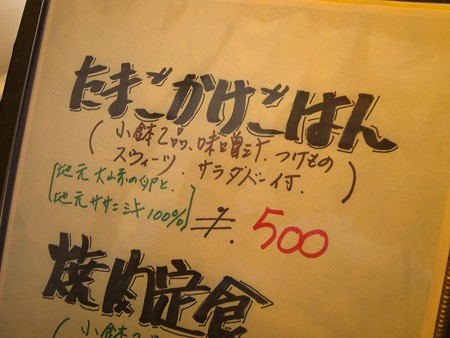 たまごかけごはん
(小鉢2品、味噌汁、つけもの
スウィーツ、サラダバー付.)
地元 大山赤の卵と、
地元 ササニシキ100%
¥. 500
焼肉定食
(小鉢2